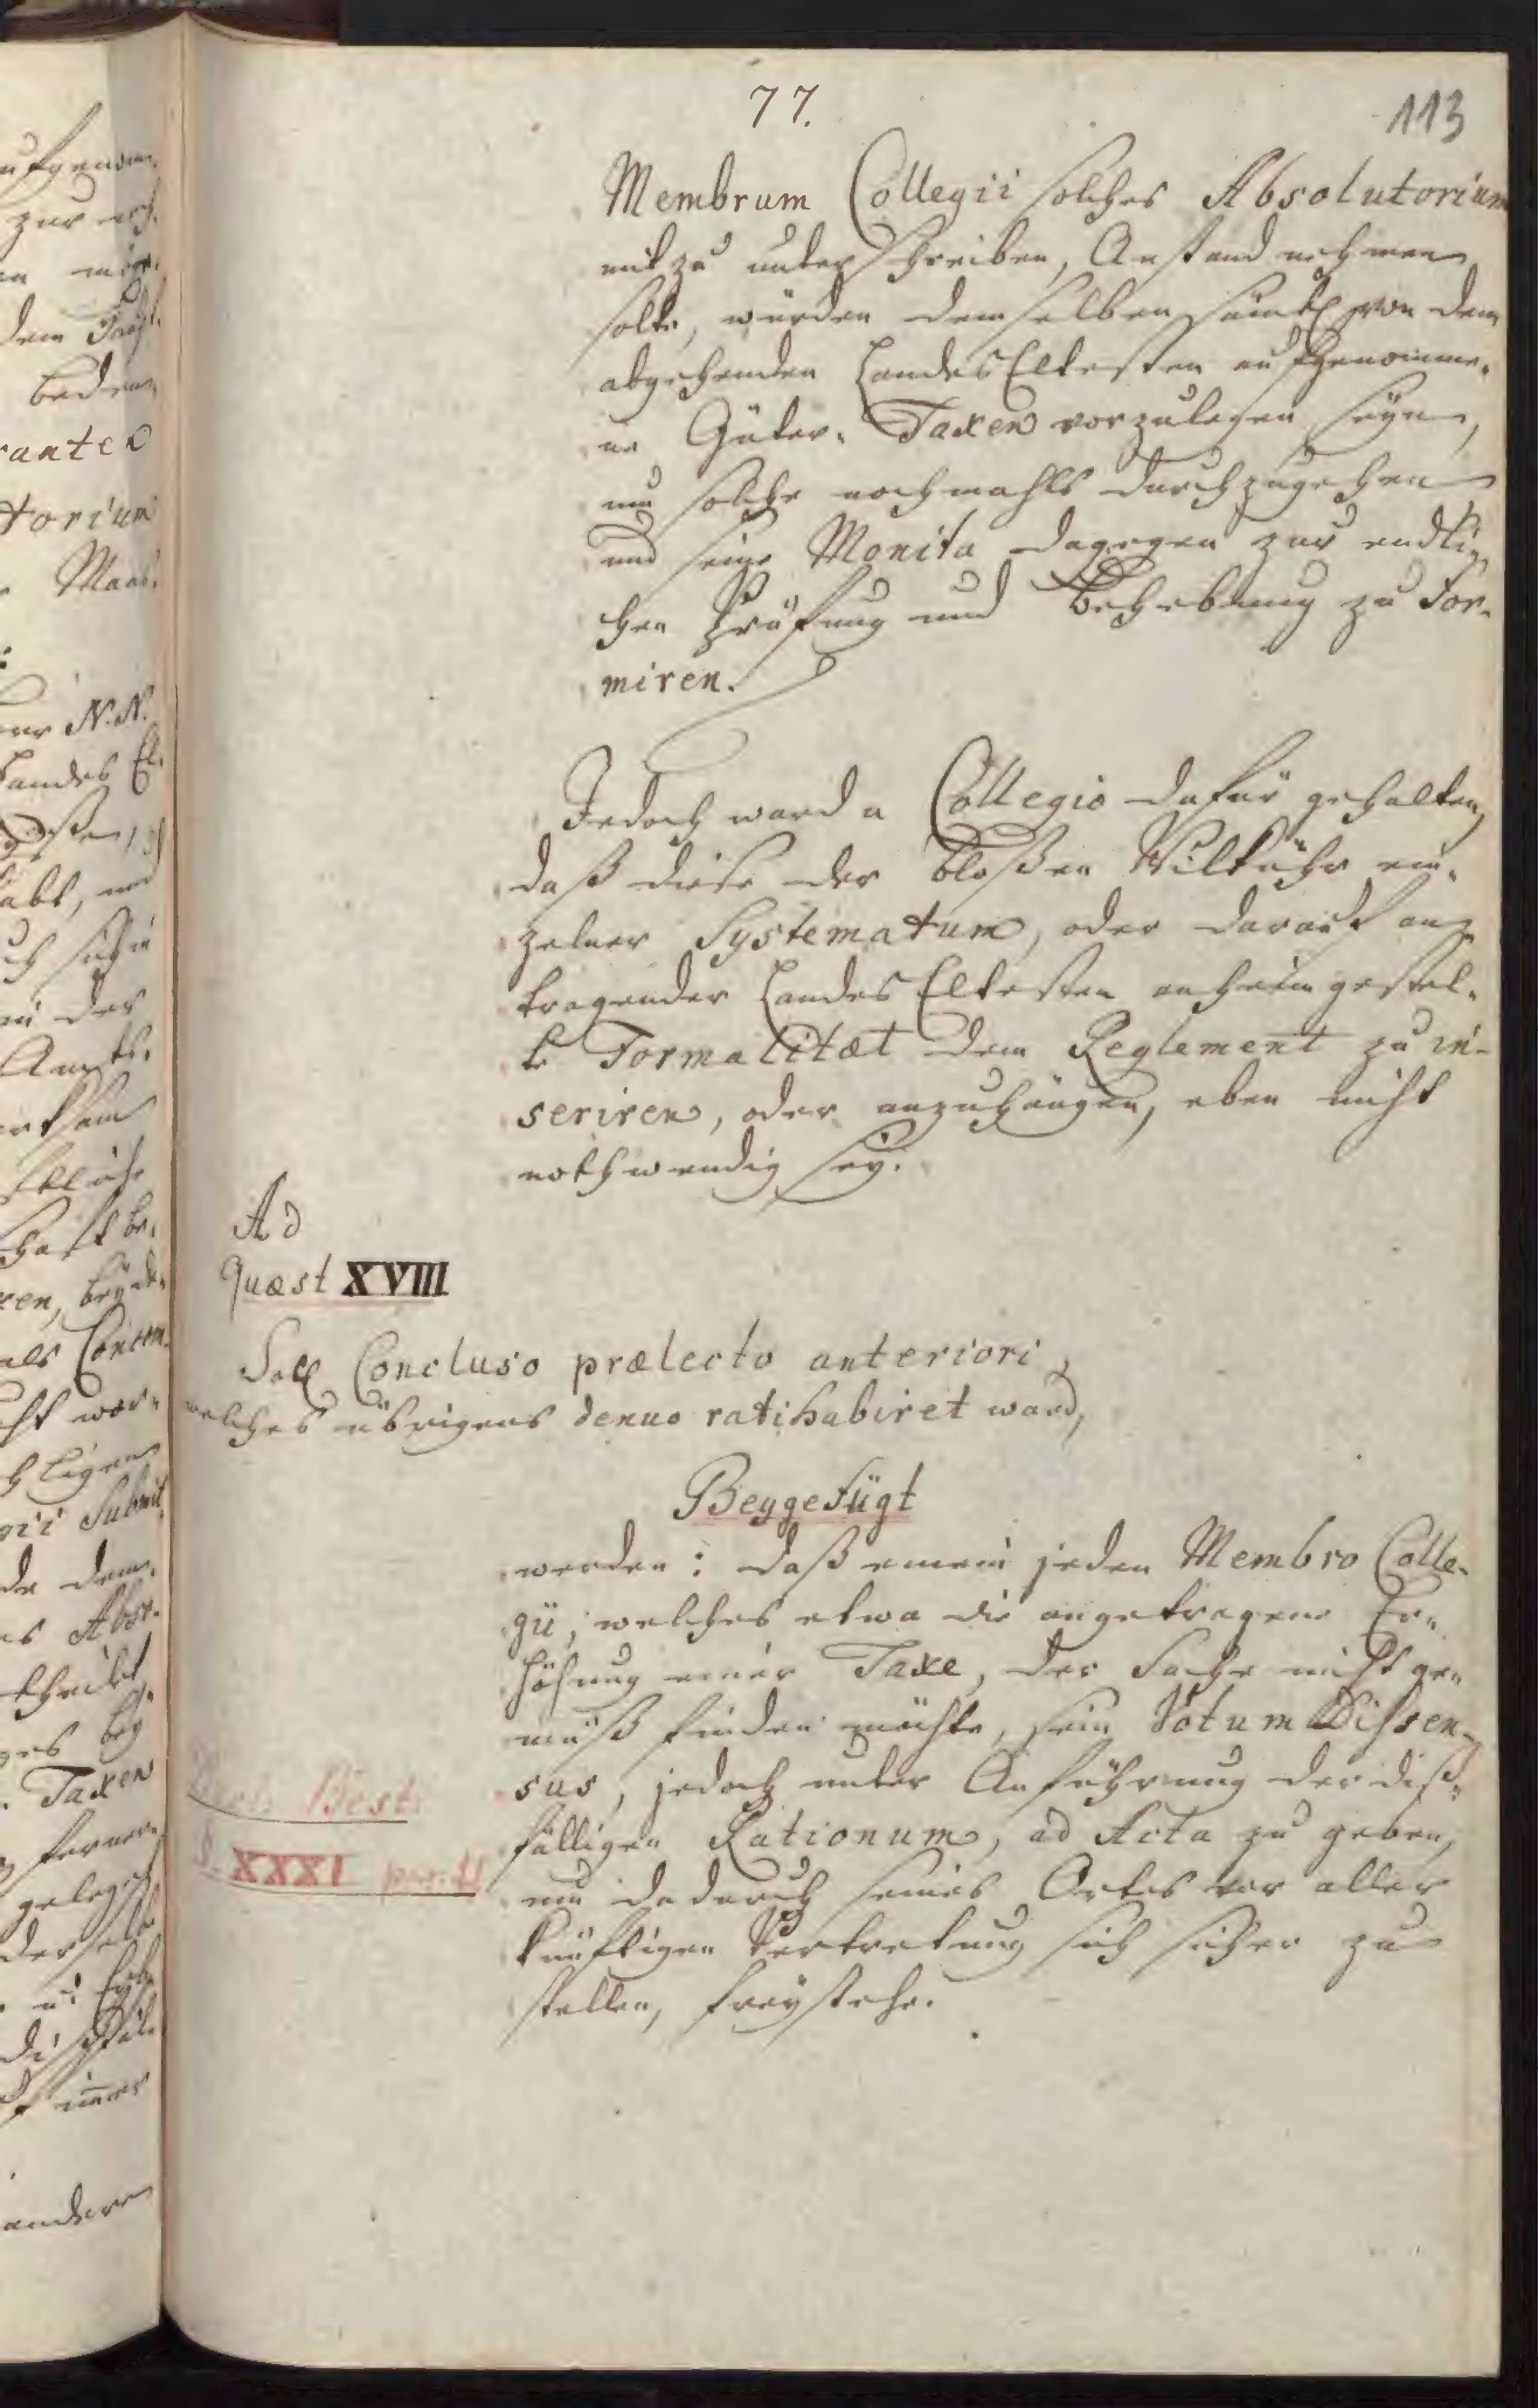 77.
113
Membrum Collegii solches Absolutorium
mit zu unterschreiben, Anstand nehmen
solte, würden demselben sämtl von dem
abgehenden Landes Eltesten aufgenomme-
ne Güter-Taxen vorzulegen seyn,
um solche nochmahls durchzugehen
und seine Monita dagegen zur endli-
chen Prüfung und Behebung zu for-
miren.
Jedoch ward a Collegio dafür gehalten,
daß diese der bloßen Wilkühr ein-
zelner Systematum, oder darauf an-
tragender Landes Eltesten anheim gestel-
te Formalitæt dem Reglement zu in-
seriren, oder anzuhängen, eben nicht
nothwendig sey.
Ad
Quæst XVIII
Soll Concluso prælecto anteriori,
welches übrigens denuo ratihabiret ward,
Beygefügt
werden: daß einem jeden Membro Colle-
gii, welches etwa die angetragene Er-
höhung einer Taxe, der Sache nicht ge-
mäß finden möchte, sein Votum Dissen-
sus, jedoch unter Anführung der diß-
fälligen Rationum, ad Acta zu geben,
um dadurch seines Ortes vor aller
künftigen Vertretung sich sicher zu
stellen, freystehe.
Best:
§. XXXI